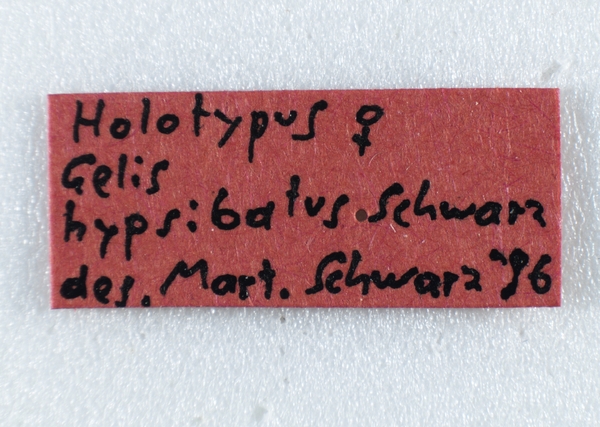 Holotypus ♀
Gelis
hypsibatus Schwarz
des. Mart. Schwarz '96